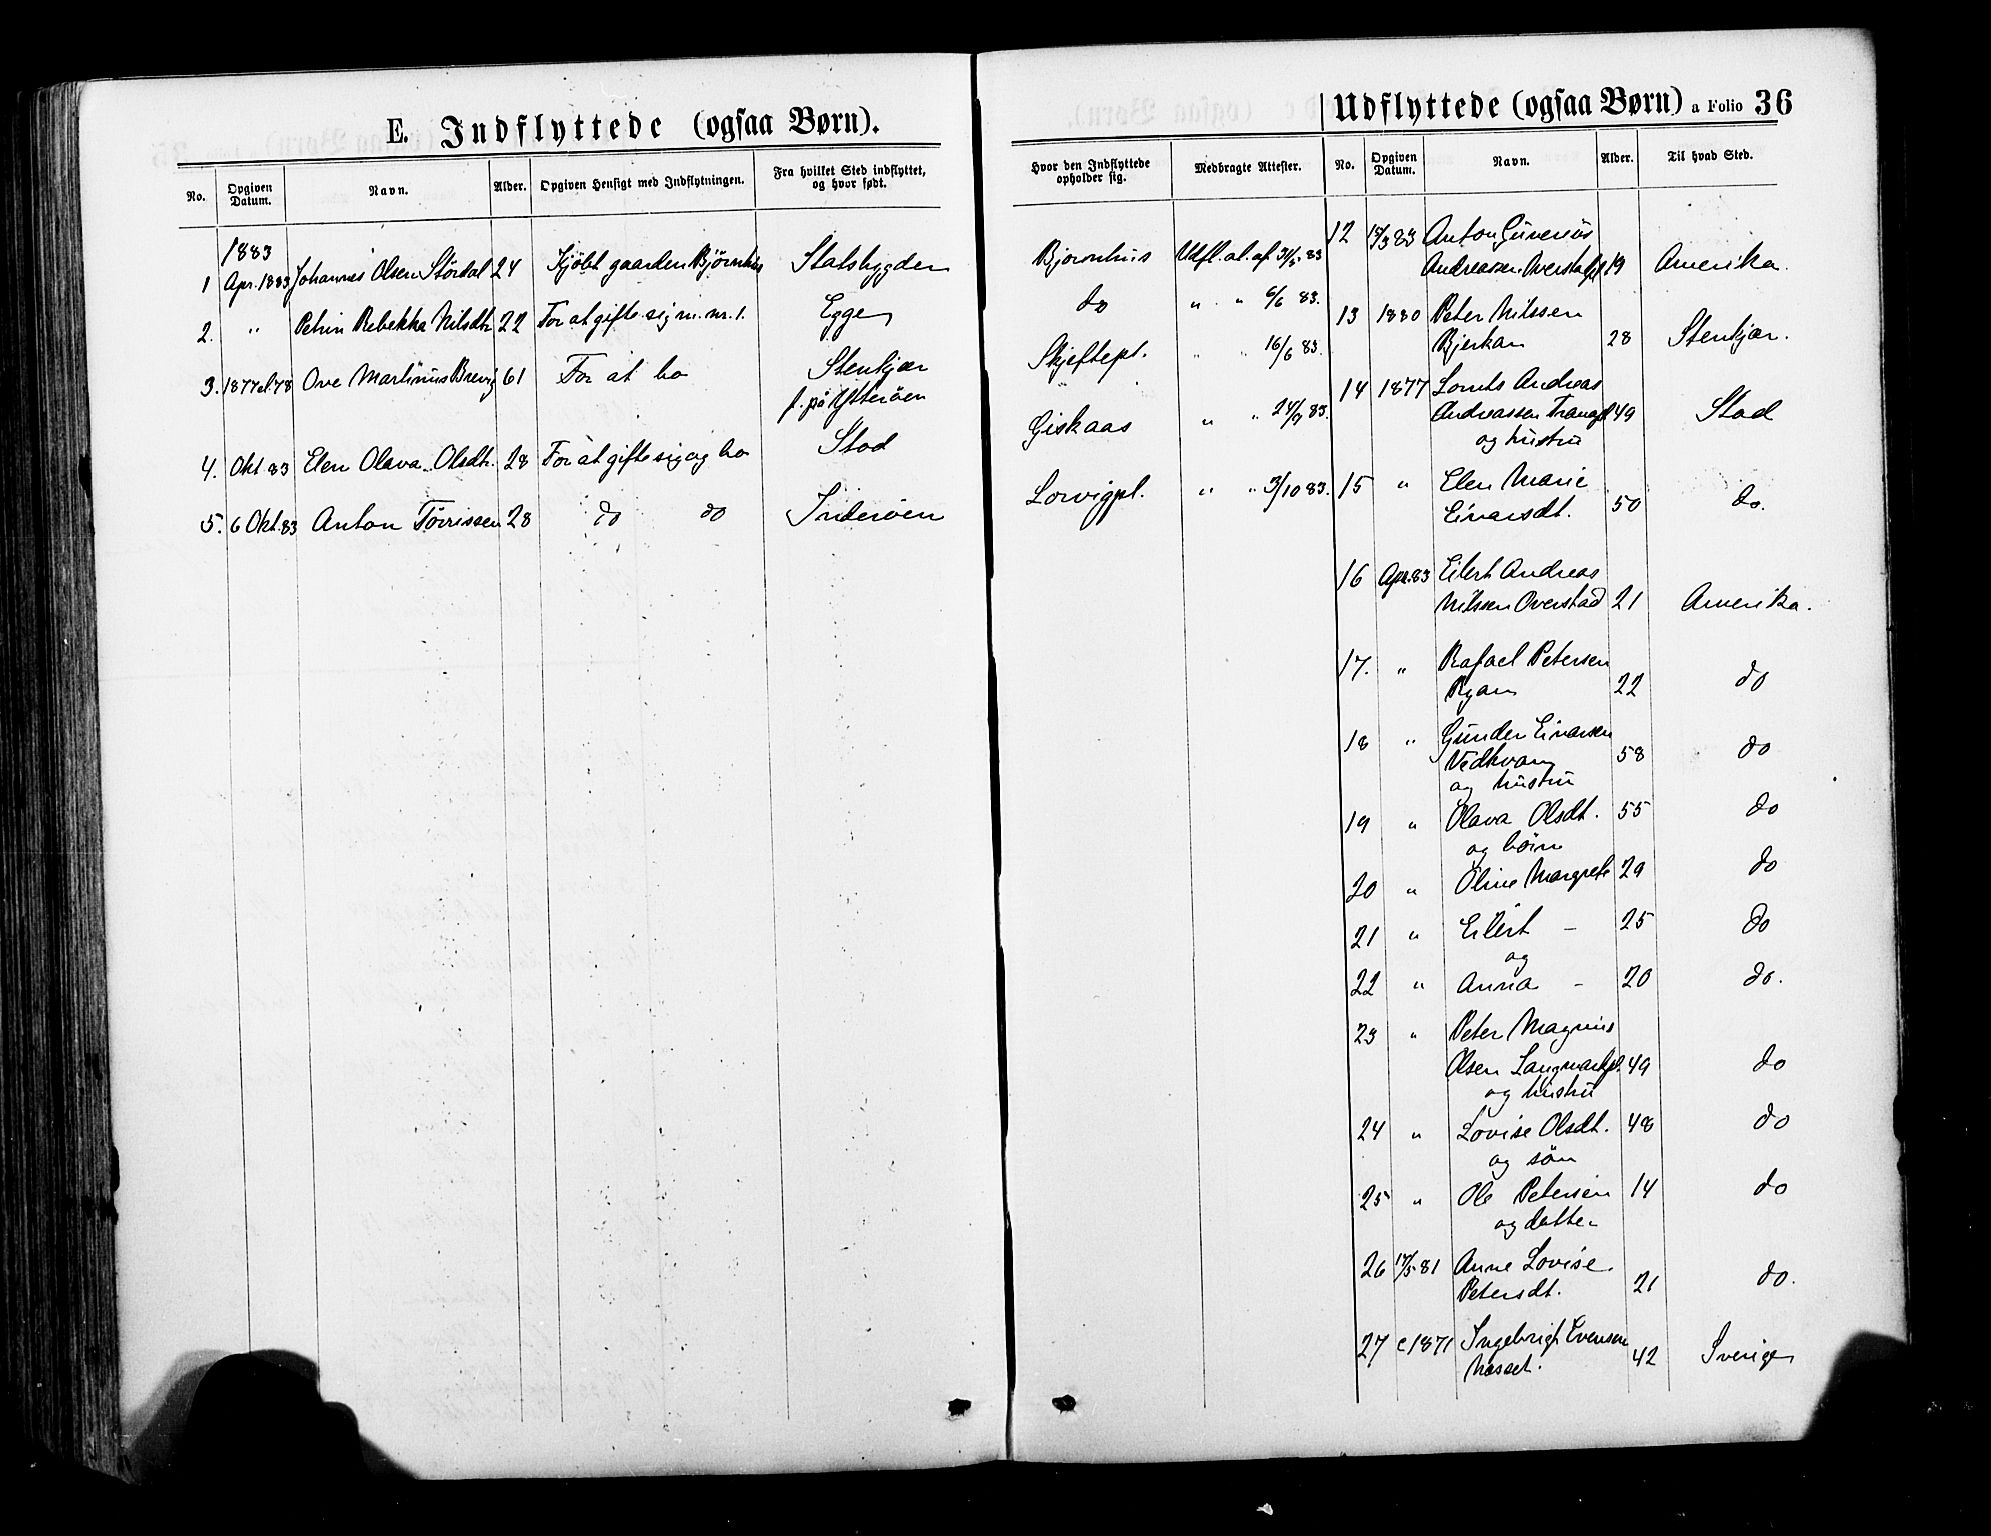 E. Indflyttede (ogsaa Børn).
No. Opgiven Datum. Navn. Alder. Opgiven Hensigt med Indflytningen. Fra hvilket Sted indflyttet, og hvor født.
1883
1 Apr. 1883 Johannes Olsen Stördal 24 Kjöbt gaarden Björnhus Statsbygden
2. " Petrin Rebekka Nilsdtr 22 For at gifte sig m. nr. 1. Egge
3. 1877 el. 78 Ove Martinus Brevig 61 For at bo Stenkjær
f. på Ytteröen
4. Okt 83 Elen Olava Olsdtr. 28 For at gifte sig og bo Stod
5. 6 Okt. 83 Anton Törrissen 28 do do Inderöen
Udflyttede (ogsaa Børn) a Folio 36
Hvor den Indflyttede opholder sig. Medbragte Attester. No. Opgiven Datum. Navn. Alder. Til hvad Sted.
Bjornhus Udfl. at. af 31/5 83
do " " 6/6 83.
Skjeftepl. " " 16/6 83.
Giskaas " " 24/9 83.
Lorvigpl. " " 3/10 83.
12 15/3 83 Anton Gunerius
Andreassen Overstadpl 19 Amerika.
13 1880 Peter Nilssen
Bjerkan 28 Stenkjær.
14 1877 Lornts Andreas
Andreassen 49 Stod
og hustru
15 " Elen Marie
Einarsdt. 50 do.
16 Apr. 83 Eilert Andreas
Nilssen Overstad 21 Amerika.
17. " Rafael Petersen
Ryan 22 do
18 " Gunder Einarsen
Vedhvam 58 do
og hustru
19 " Olava Olsdt. 55 do
og börn
20 " Oline Margrete 29 do
21 " Eilert – 25 do
og
22 " Anna – 20 do.
23 " Peter Magnus
Olsen Langmarkpl. 49 do
og hustru
24 " Lovise Olsdt. 48 do
og sön
25 " Ole Petersen 14 do
og datter
26 17/5 81 Anne Lovise
Petersdt. 21 do.
27 c 1871 Ingebrigt Evensen
Næsset. 42 Sverige